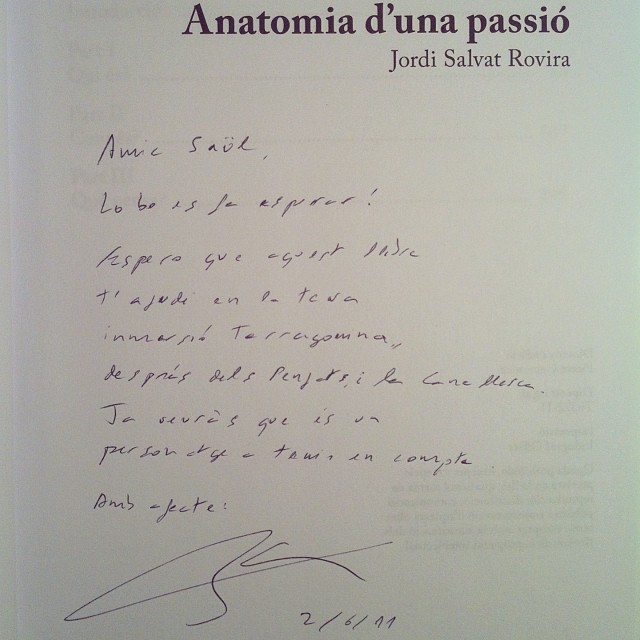 Anatomia d'una passió
Jordi Salvat Rovira
Amic Saül,
Lo bo es fa esperar!
Espero que aquest llibre
t'ajudi en la teva
immersió Tarragonina,
després dels Penjats, i la Canallesca.
Ja veuràs que és un
personatge a tenir en compte.
Amb afecte:
2/6/11